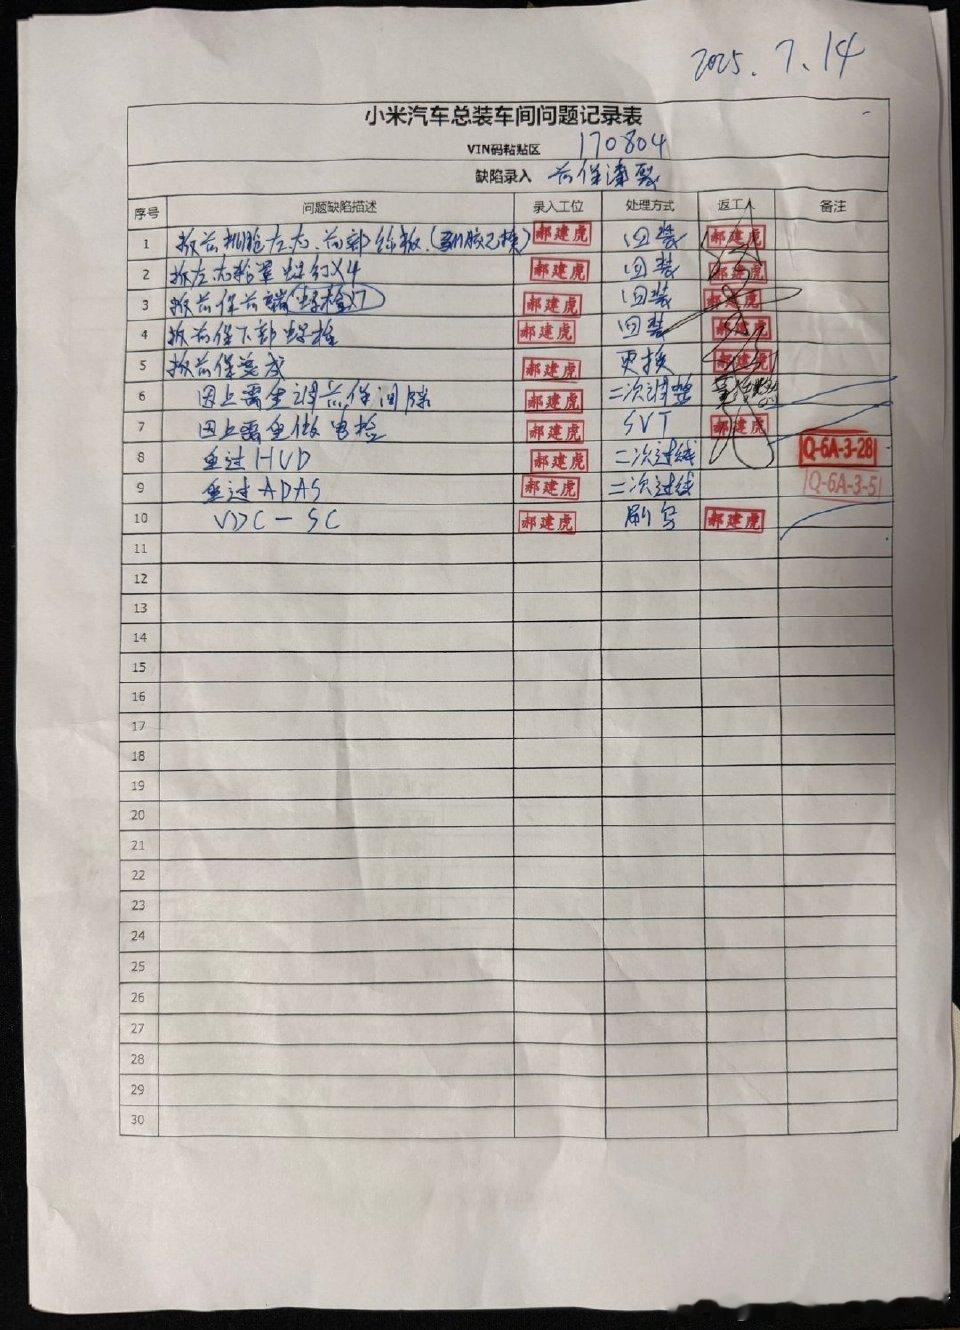 2025.7.14
小米汽车总装车间问题记录表
VIN码粘贴区 170804
缺陷录入 前保漆裂
序号 问题缺陷描述 录入工位 处理方式 返工人 备注
1 拆前机舱左右、前部饰板. 郝建虎 回装 郝建虎
2 拆左右轮罩螺钉X4 郝建虎 回装 郝建虎
3 拆前保前端 郝建虎 回装 郝建虎
4 拆前保下部螺栓 郝建虎 回装 郝建虎
5 拆前保总成 郝建虎 更换 郝建虎
6 因上需重调前保间隙 郝建虎 二次调整
7 因上需重做电检 郝建虎 SVT 郝建虎
8 重过HUD 郝建虎 二次过线 Q-6A-3-28
9 重过ADAS 郝建虎 二次过线 Q-6A-3-5
10 VDC-SC 郝建虎 刷写 郝建虎
11
12
13
14
15
16
17
18
19
20
21
22
23
24
25
26
27
28
29
30